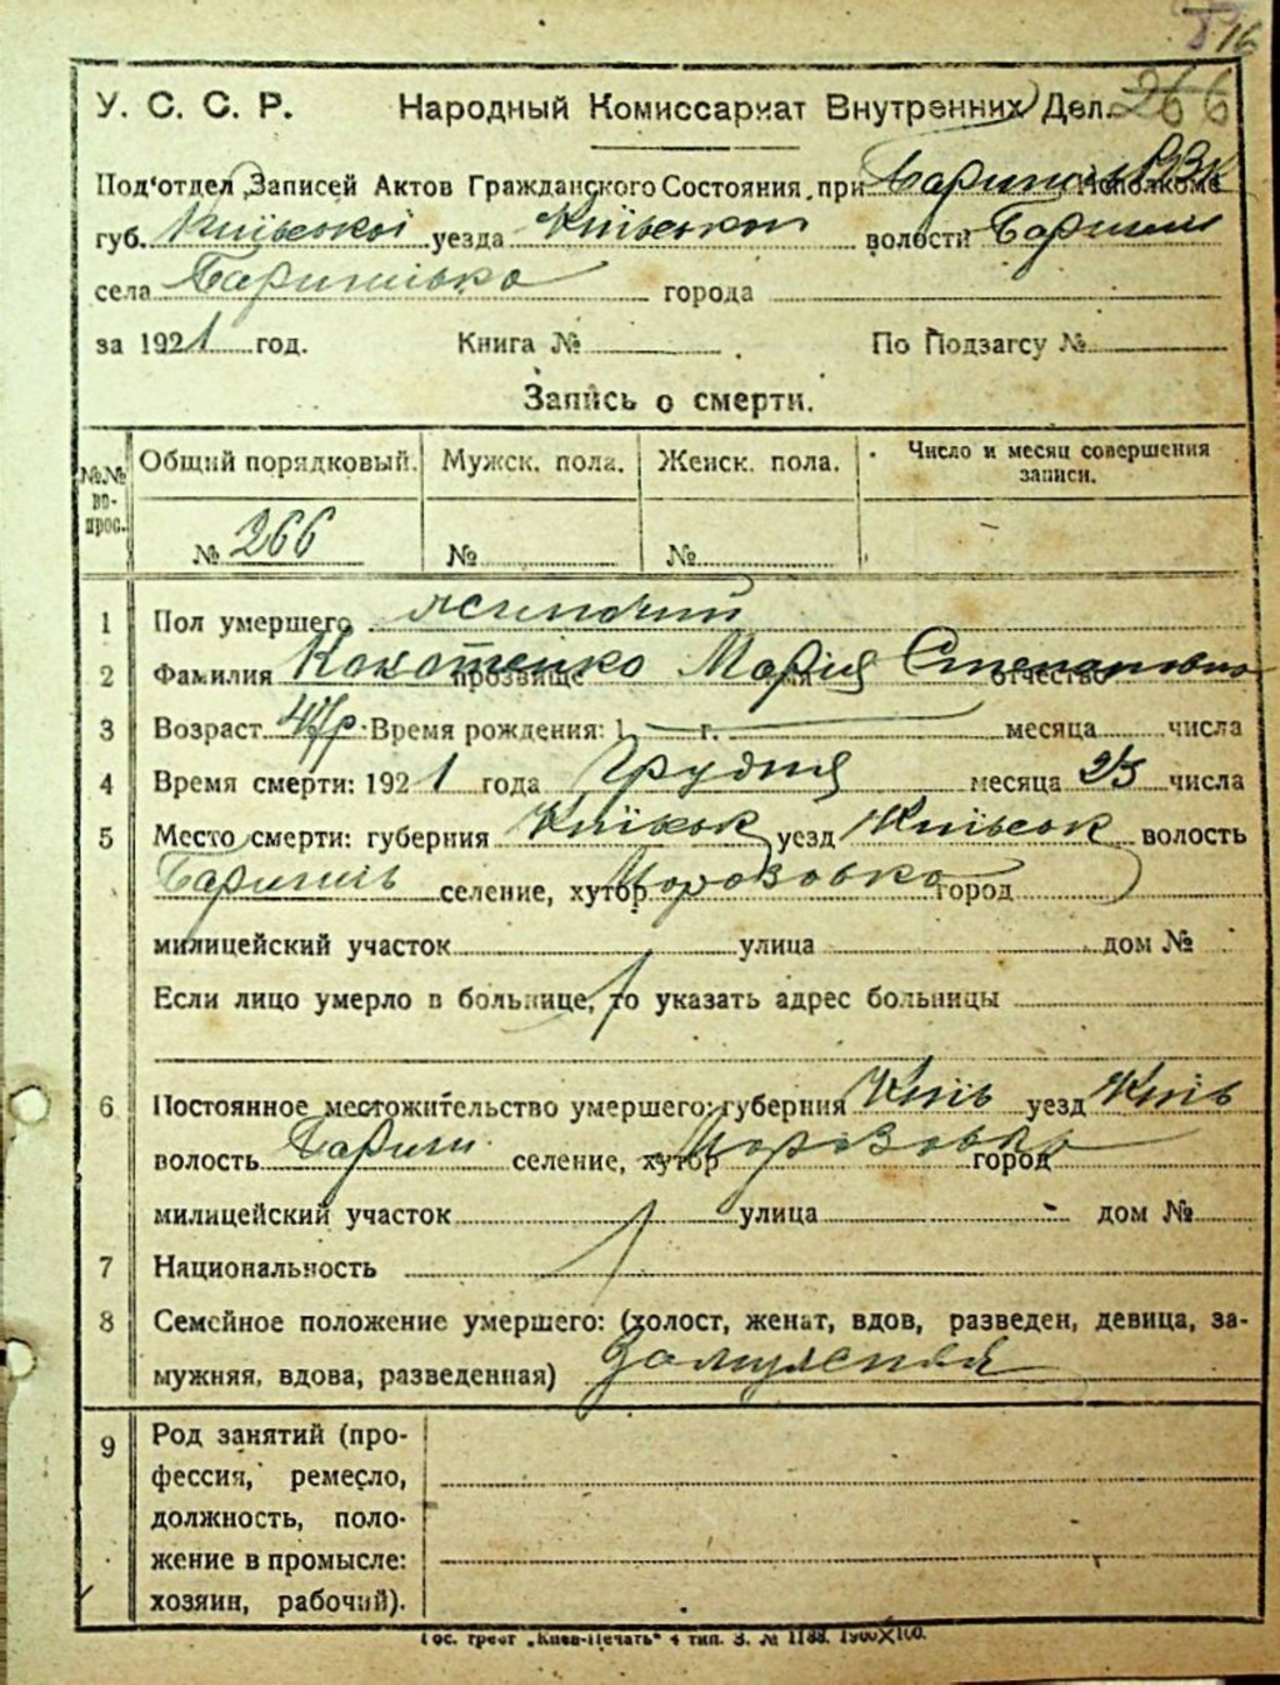 16
266
У. С. С. Р. Народный Комиссариат Внутренних Дел.
Под'отдел Записей Актов Гражданского Состояния при Исполкоме
губ. Київської уезда Київської волости Баришп
села Баришівка города
за 1921 год. Книга № По Подзагсу №
Запись о смерти.
№№ вопрос. Общий порядковый. Мужск. пола. Женск. пола. Число и месяц совершения записи.
№ 266 № №
1 Пол умершего жіночий
2 Фамилия прозвище Мария отчество Степановна
3 Возраст Время рождения: 1 г. месяца числа
4 Время смерти: 1921 года Грудня месяца 25 числа
5 Место смерти: губерния уезд Київськ волость
селение, хутор Морозовка город
милицейский участок улица дом №
Если лицо умерло в больнице, то указать адрес больницы
6 Постоянное местожительство умершего: губерния Київ уезд Київ
волость Бариш селение, хутор Морозовка город
милицейский участок улица дом №
7 Национальность
8 Семейное положение умершего: (холост, женат, вдов, разведен, девица, за-
мужняя, вдова, разведенная) Замужняя
9 Род занятий (про-
фессия, ремесло,
должность, поло-
жение в промысле:
хозяин, рабочий).
Гос. трест „Киев-Печать“ 4 тип. З. № 1188.